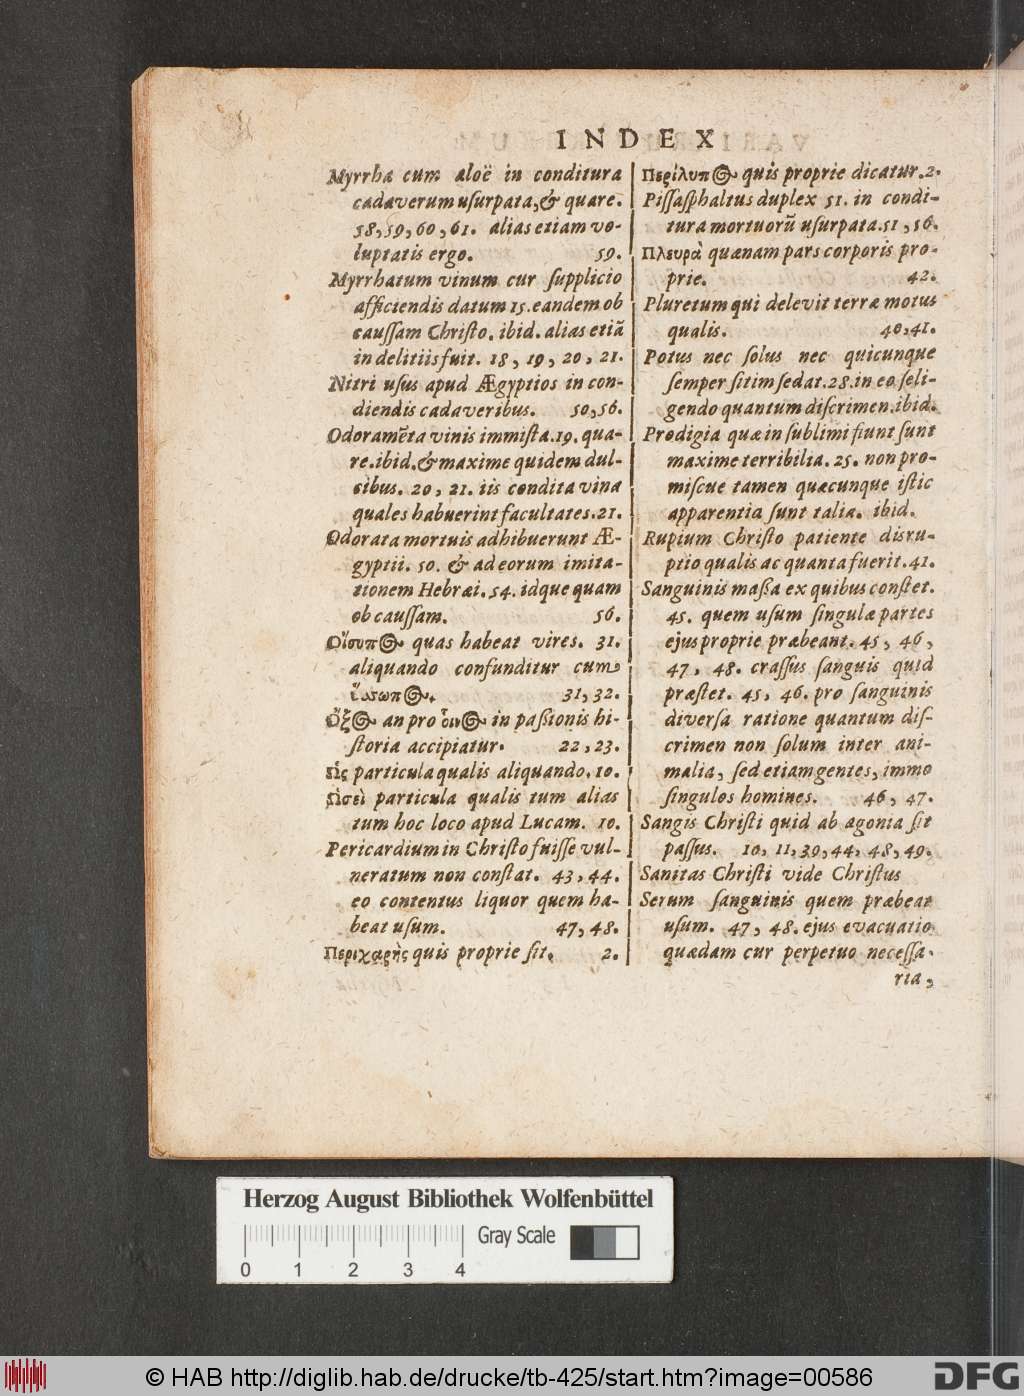 INDEX
Myrrha cum aloë in conditura
cadaverum uſurpata, & quare.
58, 59, 60, 61. alias etiam vo-
luptatis ergo. 59.
Myrrhatum vinum cur ſupplicio
afficiendis datum 15. eandem ob
cauſſam Chriſto. ibid. alias etiã
in delitiis fuit. 18, 19, 20, 21.
Nitri uſus apud Ægyptios in con-
diendis cadaveribus. 50, 56.
Odoramẽta vinis immiſta. 19. qua-
re. ibid. & maxime quidem dul-
cibus. 20, 21. iis condita vina
quales habuerint facultates. 21.
Odorata mortuis adhibuerunt Æ-
gyptii. 50. & ad eorum imita-
tionem Hebræi. 54. idque quam
ob cauſſam. 56.
Οἴσυπος quas habeat vires. 31.
aliquando confunditur cum
ὕσσωπος. 31, 32.
Ὄξος an pro οἶνος in paſsionis hi-
ſtoria accipiatur. 22, 23.
Ὡς particula qualis aliquando. 10.
Ὡσεὶ particula qualis tum alias
tum hoc loco apud Lucam. 10.
Pericardium in Chriſto fuiſſe vul-
neratum non conſtat. 43, 44.
eo contentus liquor quem ha-
beat uſum. 47, 48.
Περιχαρὴς quis proprie ſit. 2.
Περίλυπος quis proprie dicatur. 2.
Piſſaſphaltus duplex 51. in condi-
tura mortuorũ uſurpata. 51, 56.
Πλευρὰ quænam pars corporis pro-
prie. 42.
Pluretum qui delevit terræ motus
qualis. 40, 41.
Potus nec ſolus nec quicunque
ſemper ſitim ſedat. 28. in eo ſeli-
gendo quantum diſcrimen. ibid.
Prodigia quæ in ſublimi fiunt ſunt
maxime terribilia. 25. non pro-
miſcue tamen quæcunque iſtic
apparentia ſunt talia. ibid.
Rupium Chriſto patiente disru-
ptio qualis ac quanta fuerit. 41.
Sanguinis maßa ex quibus conſtet.
45. quem uſum ſingulæ partes
ejus proprie præbeant. 45, 46,
47, 48. craſſus ſanguis quid
præſtet. 45, 46. pro ſanguinis
diverſa ratione quantum diſ-
crimen non ſolum inter ani-
malia, ſed etiam gentes, immo
ſingulos homines. 46, 47.
Sangis Chriſti quid ab agonia ſit
paſſus. 10, 11, 39, 44, 48, 49.
Sanitas Chriſti vide Chriſtus
Serum ſanguinis quem præbeat
uſum. 47, 48. ejus evacuatio
quædam cur perpetuo neceſſa-
ria,
Herzog August Bibliothek Wolfenbüttel
Gray Scale
0 1 2 3 4
© HAB http://diglib.hab.de/drucke/tb-425/start.htm?image=00586
DFG